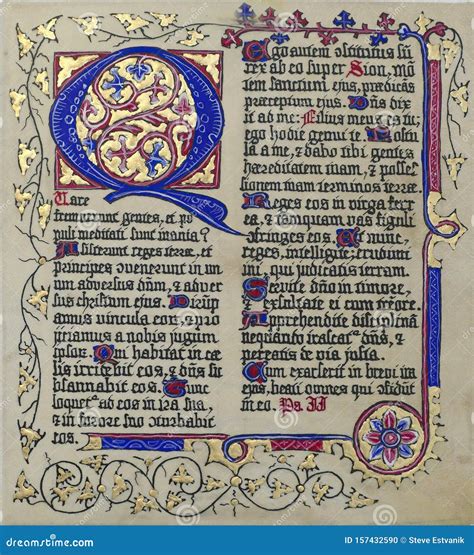 Quare
fremuerunt gentes, et po
puli meditati sunt inania?
Astiterunt reges terræ, et
principes ɔvenerunt in un
um adversus dñm, & adver
sus christum ejus. Dirump
amus vincula eorum, & pro
jiciamus a nobis jugum
ipsor. Qui habitat in cæ
lis irridebit eos, & dñs su
bsannabit eos. Tunc
loquet' ad eos in ira sua,
& in furore suo ɔturbabit
eos.
Ego autem ɔstitutus sū
rex ab eo super Sion, mōn
tem sanctum ejus, prædicās
præceptum ejus. Dñs dix
it ad me: Filius meus es tu;
ego hodie genui te. Postu
la a me, & dabo tibi gentes
hæreditatem meam, & posses
sionem meam terminos terræ.
Reges eos in virga ferre
a, & tanquam vas figuli
ɔfringes eos. Et nunc,
reges, intelligite: erudimi
ni, qui judicatis terram.
Servite dño in timore,
& exsultate ei cum tremore.
Apprehendite disciplinā
nequando irascat' dñs, &
pereatis de via justa.
Cum exarserit in brevi ira
ejus, beati omnes qui ɔfidūt
in eo. Ps. II
dreamstime
ID 157432590 © Steve Estvanik